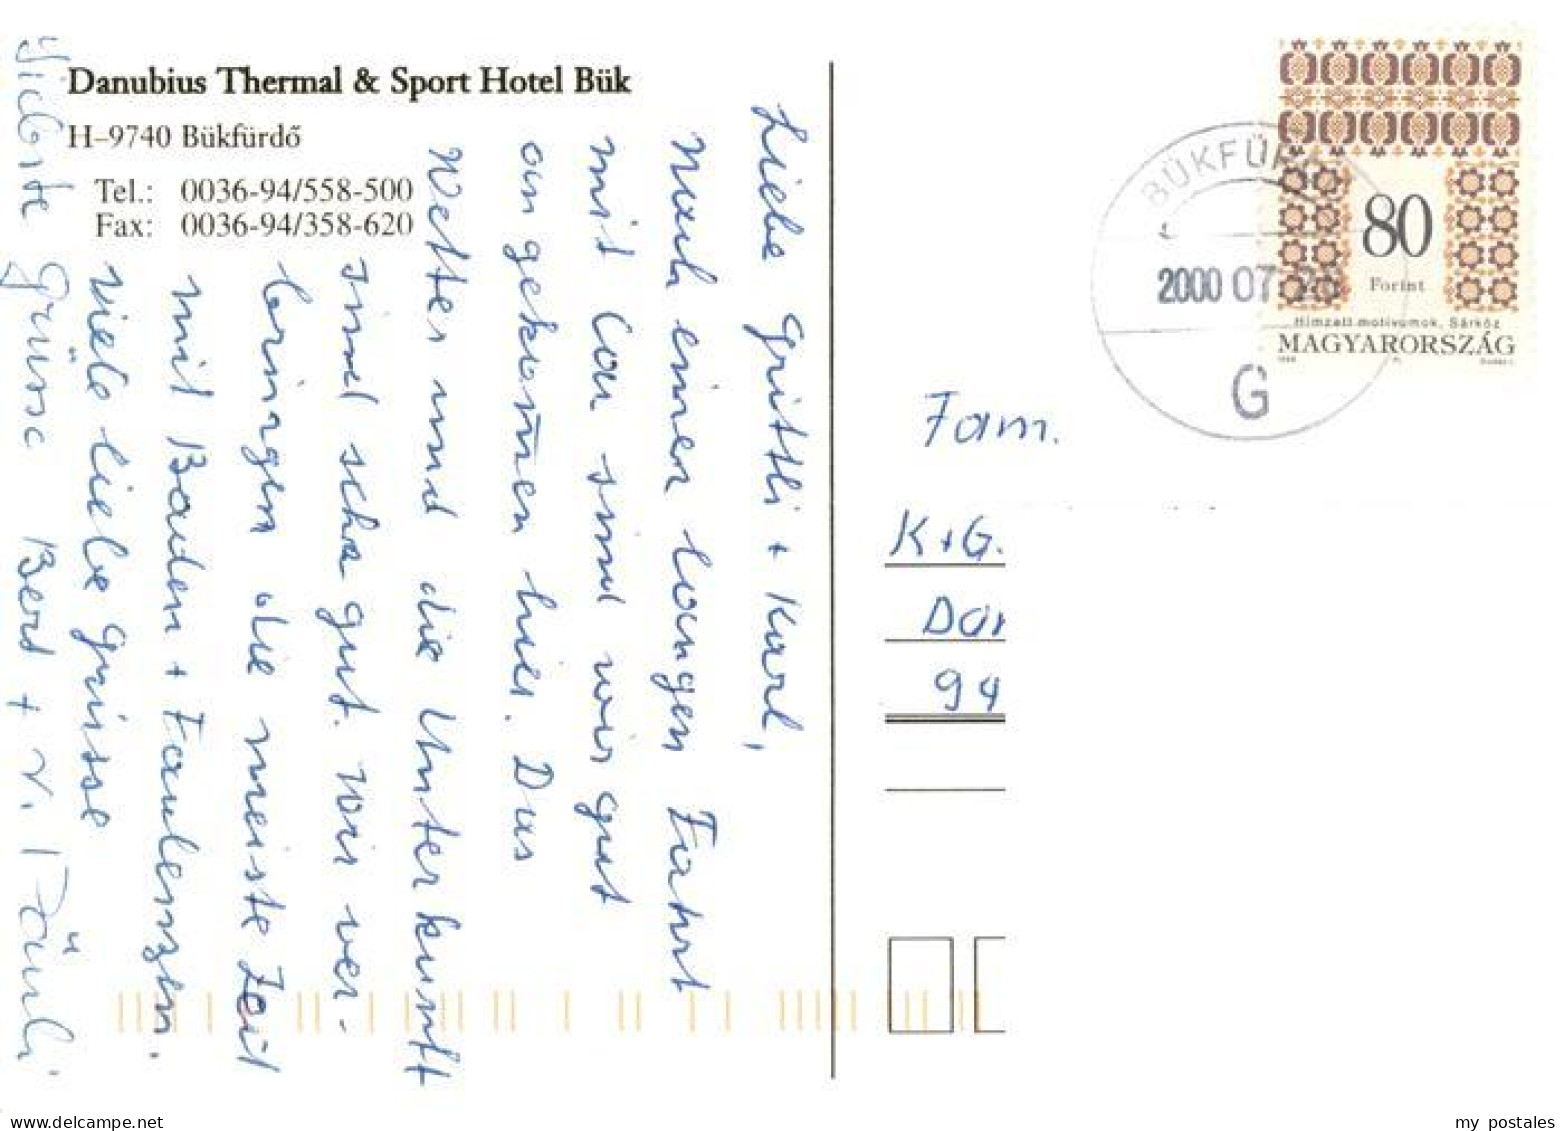 Danubius Thermal & Sport Hotel Bük
H-9740 Bükfürdő
Tel.: 0036-94/558-500
Fax: 0036-94/358-620
Liebe Gritli + Karl,
Nach einer langen Fahrt
mit Car sind wir gut
angekom̄en hier. Das
Wetter und die Unterkunft
sind sehr gut. Wir ver-
bringen die meiste Zeit
mit Baden + Faulenzen.
Viele liebe Grüsse
Liebste Grüsse Bert + V.
80
Forint
Hímzett motívumok, Sárköz
MAGYARORSZÁG
BÜKFÜR
2000 07
G
Fam.
K+G.
94
my postales